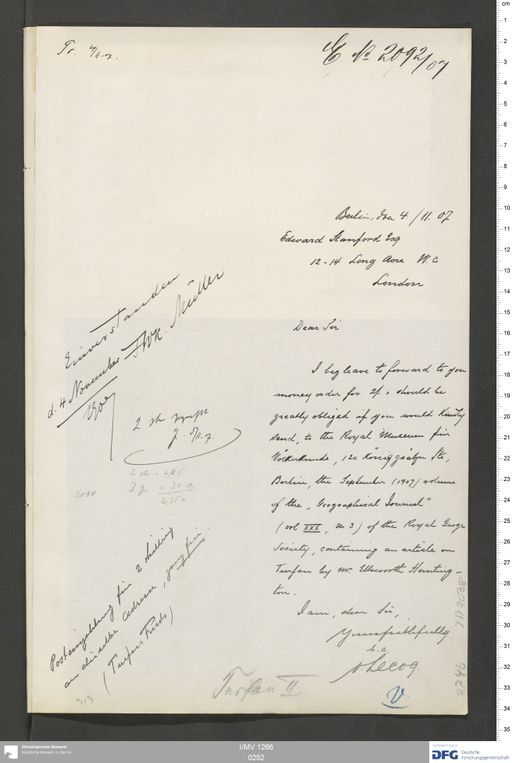 E No 2092/07
Berlin, den 4/11.07
Edward Stanford Esq
12-14 Long Acre W.C
London
Dear Sir
I beg leave to forward to you
money order for 2/. & should be
greatly obliged if you would kindly
send, to the Royal Museum für
Völkerkunde, 120 Königgrätzer Str,
Berlin, the September (1907) volume
of the „Geographical Journal"
(vol XXX, No 3) of the Royal Geogr
Society, containing an article on
Turfan by Mr. Ellsworth Hunting-
ton.
I am, dear Sir,
Yours faithfully
v. Lecoq
Einverstanden
d. 4 November FWK. Müller
1907
2 sh
Posteinzahlung für 2 Schilling
an dieselbe Adresse,
(Turfan Fonds)
Turfan II
I/MV 1266
0252
Ethnologisches Museum
Staatliche Museen zu Berlin
DFG Deutsche
Forschungsgemeinschaft